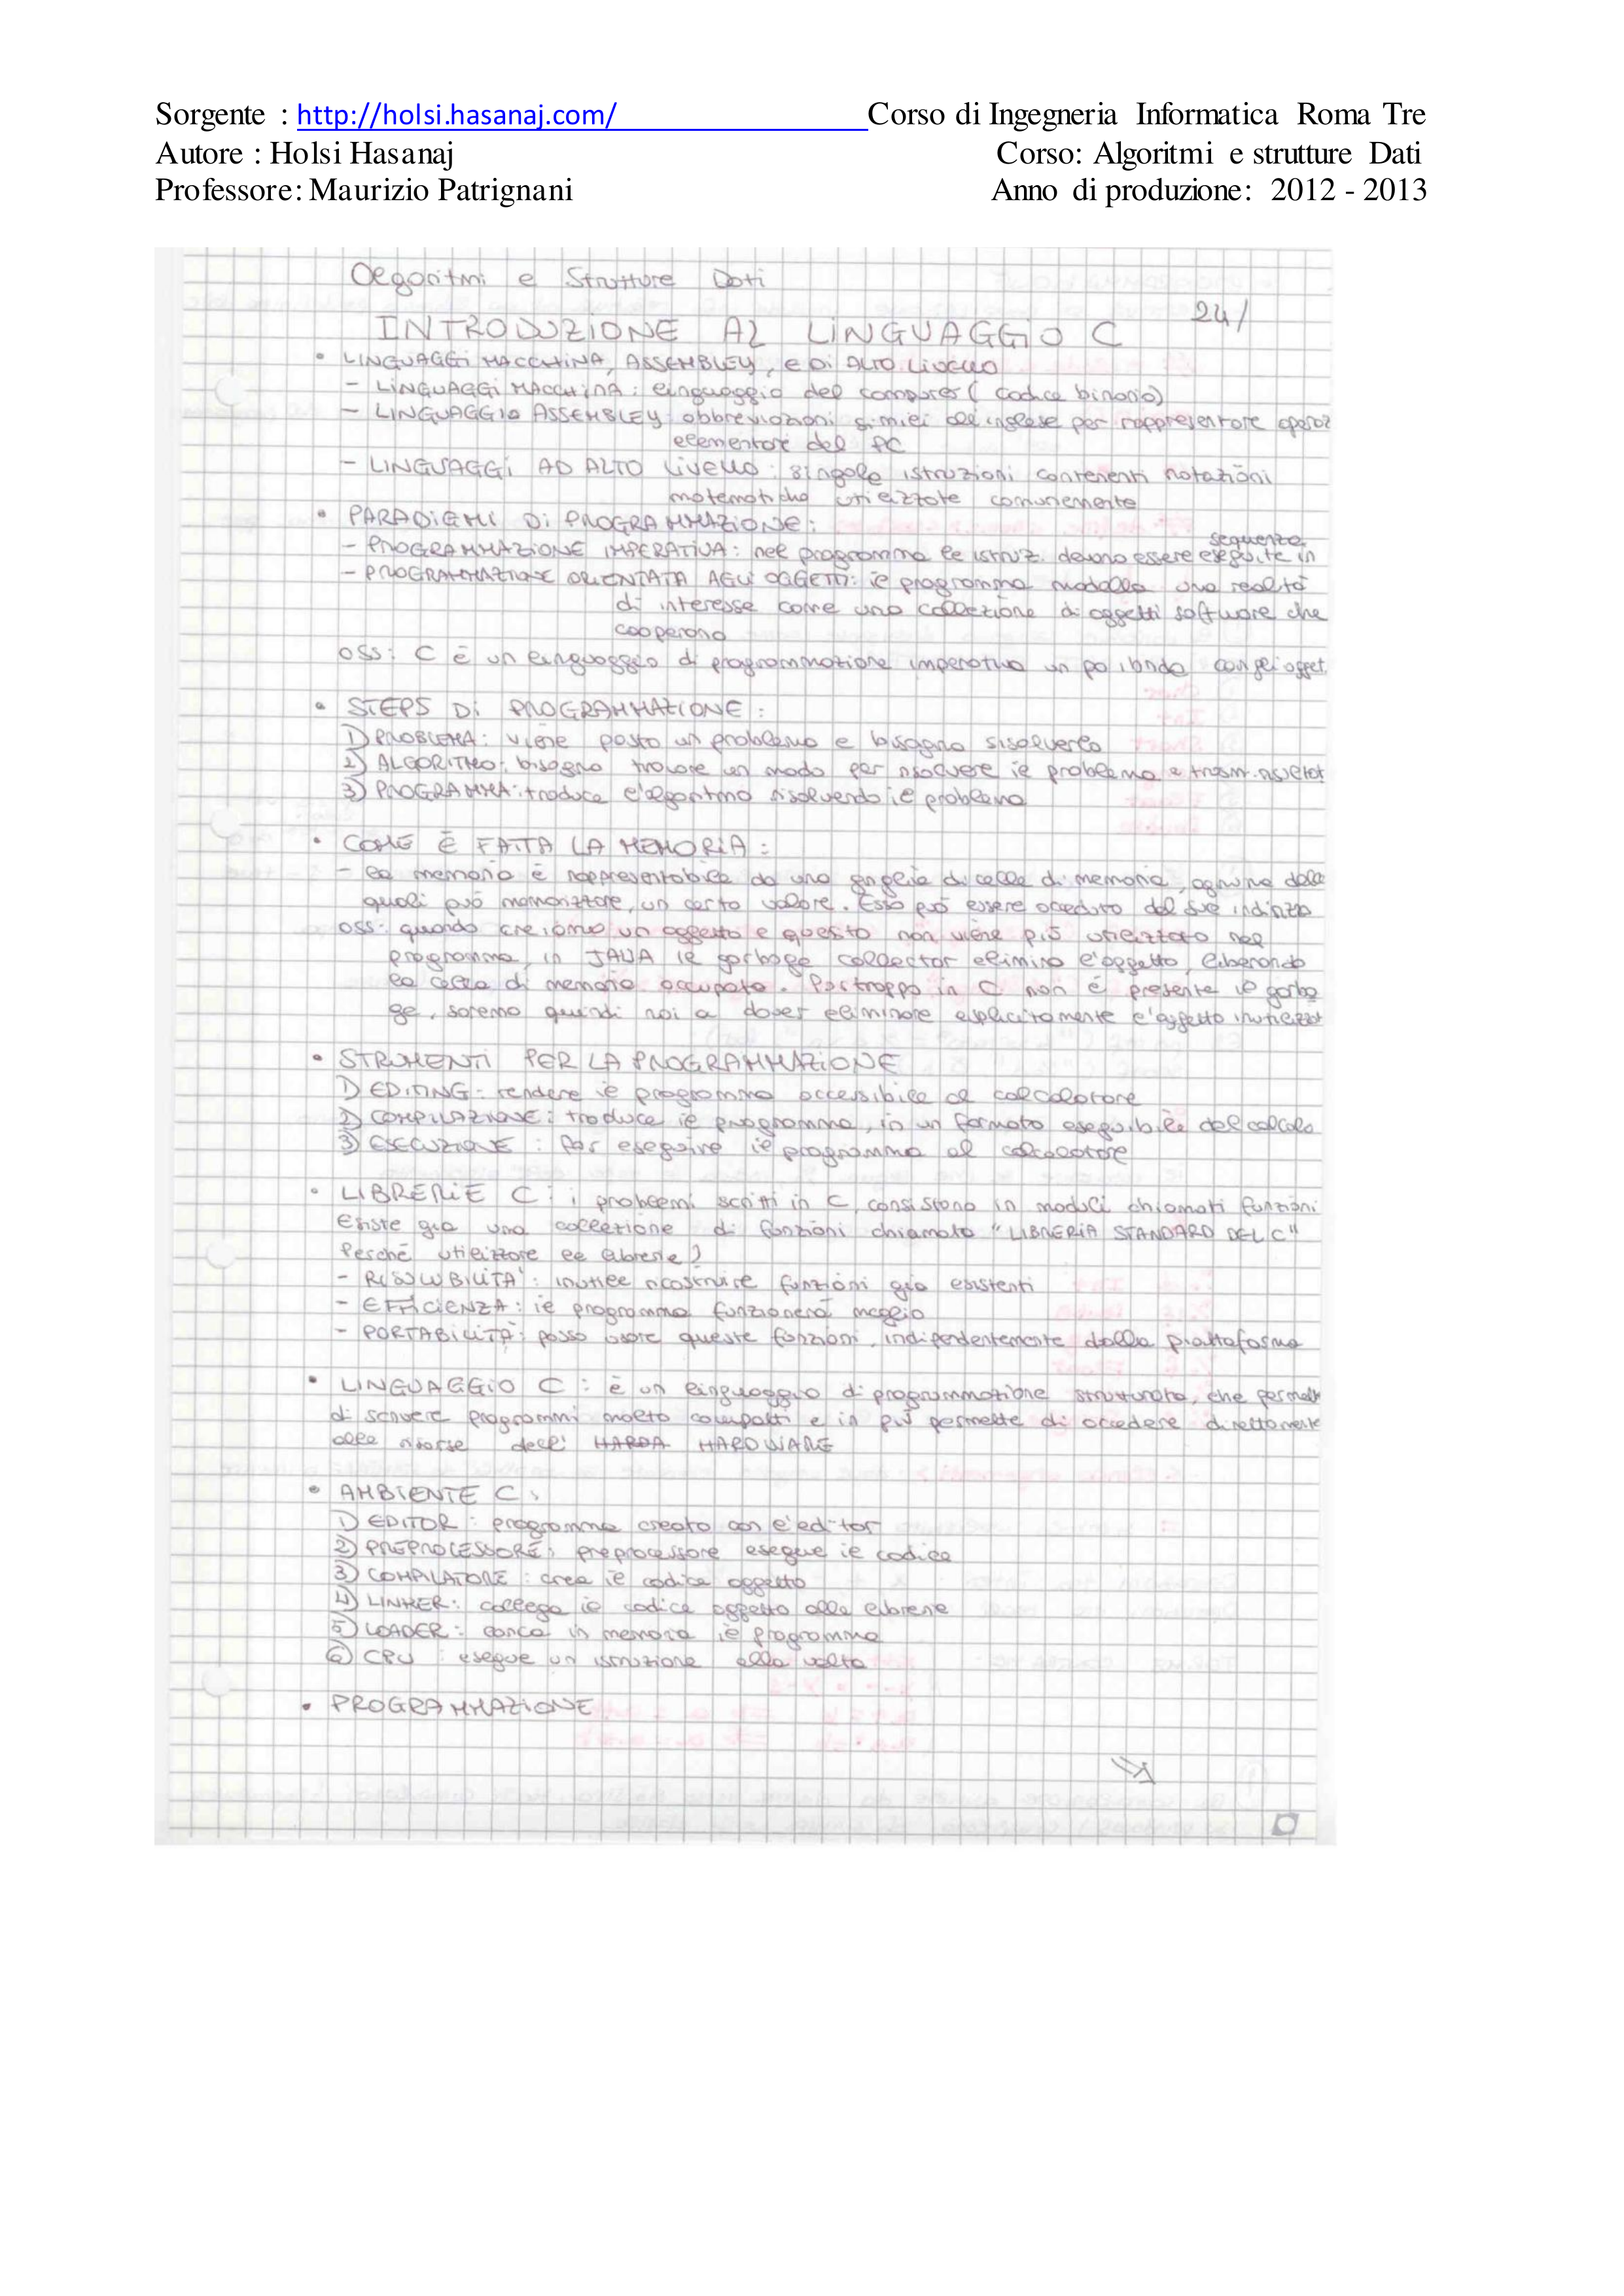 Sorgente : http://holsi.hasanaj.com/ Corso di Ingegneria Informatica Roma Tre
Autore : Holsi Hasanaj Corso: Algoritmi e strutture Dati
Professore: Maurizio Patrignani Anno di produzione: 2012 - 2013
Algoritmi e Strutture Dati
24/
INTRODUZIONE AL LINGUAGGIO C
• LINGUAGGI MACCHINA, ASSEMBLEY, e Di ALTO Livello
- LINGUAGGI MACCHINA: linguaggio del computer (codice binario)
- LINGUAGGIO ASSEMBLEY: abbreviazioni simili all'inglese per rappresentare operaz
elementari del PC
- LINGUAGGI AD ALTO Livello: singole istruzioni contenenti notazioni
matematiche utilizzate comunemente
• PARADIGMI Di PROGRAMMAZIONE:
- PROGRAMMAZIONE IMPERATIVA: nel programma le istruz. devono essere eseguite in sequenza
- PROGRAMMAZIONE ORIENTATA AGLI OGGETTI: il programma modella una realtà
di interesse come una collezione di oggetti software che
cooperano
oss: C è un linguaggio di programmazione imperativo un po ibrido con gli ogget.
• STEPS Di PROGRAMMAZIONE:
1) PROBLEMA: viene posto un problema e bisogna risolverlo
2) ALGORITMO: bisogna trovare un modo per risolvere il problema e
3) PROGRAMMA: traduce l'algoritmo risolvendo il problema
• COME È FATTA LA MEMORIA:
- la memoria è rappresentabile da una griglia di celle di memoria, ognuna delle
quali può memorizzare, un certo valore. Esso può essere acceduto dal suo indirizzo
oss: quando creiamo un oggetto e questo non viene più utilizzato nel
programma, in JAVA il garbage collector elimina l'oggetto, liberando
la cella di memoria occupata. Purtroppo in C non è presente il garba
ge, saremo quindi noi a dover eliminare esplicitamente l'oggetto inutilizzat
• STRUMENTI PER LA PROGRAMMAZIONE
1) EDITING: rendere il programma accessibile al calcolatore
2) COMPILAZIONE: traduce il programma, in un formato eseguibile dal calcola
3) ESECUZIONE: far eseguire il programma al calcolatore
• LIBRERIE C: i problemi scritti in C, consistono in moduli chiamati funzioni
Esiste gia una collezione di funzioni chiamata "LIBRERIA STANDARD DEL C"
Perché utilizzare le librerie?
- RISOLUBILITA': inutile ricostruire funzioni gia esistenti
- EFFICIENZA: il programma funzionerà meglio
- PORTABILITA': posso usare queste funzioni, indipendentemente dalla piattaforma
• LINGUAGGIO C: è un linguaggio di programmazione strutturato, che permett
di scrivere programmi molto compatti e in più permette di accedere direttamente
alle risorse dell' HARDA HARDWARE
• AMBIENTE C:
1) EDITOR: programma creato con l'editor
2) PREPROCESSORE: preprocessore esegue il codice
3) COMPILATORE: crea il codice oggetto
4) LINKER: collega il codice oggetto alle librerie
5) LOADER: carica in memoria il programma
6) CPU: esegue un istruzione alla volta
• PROGRAMMAZIONE